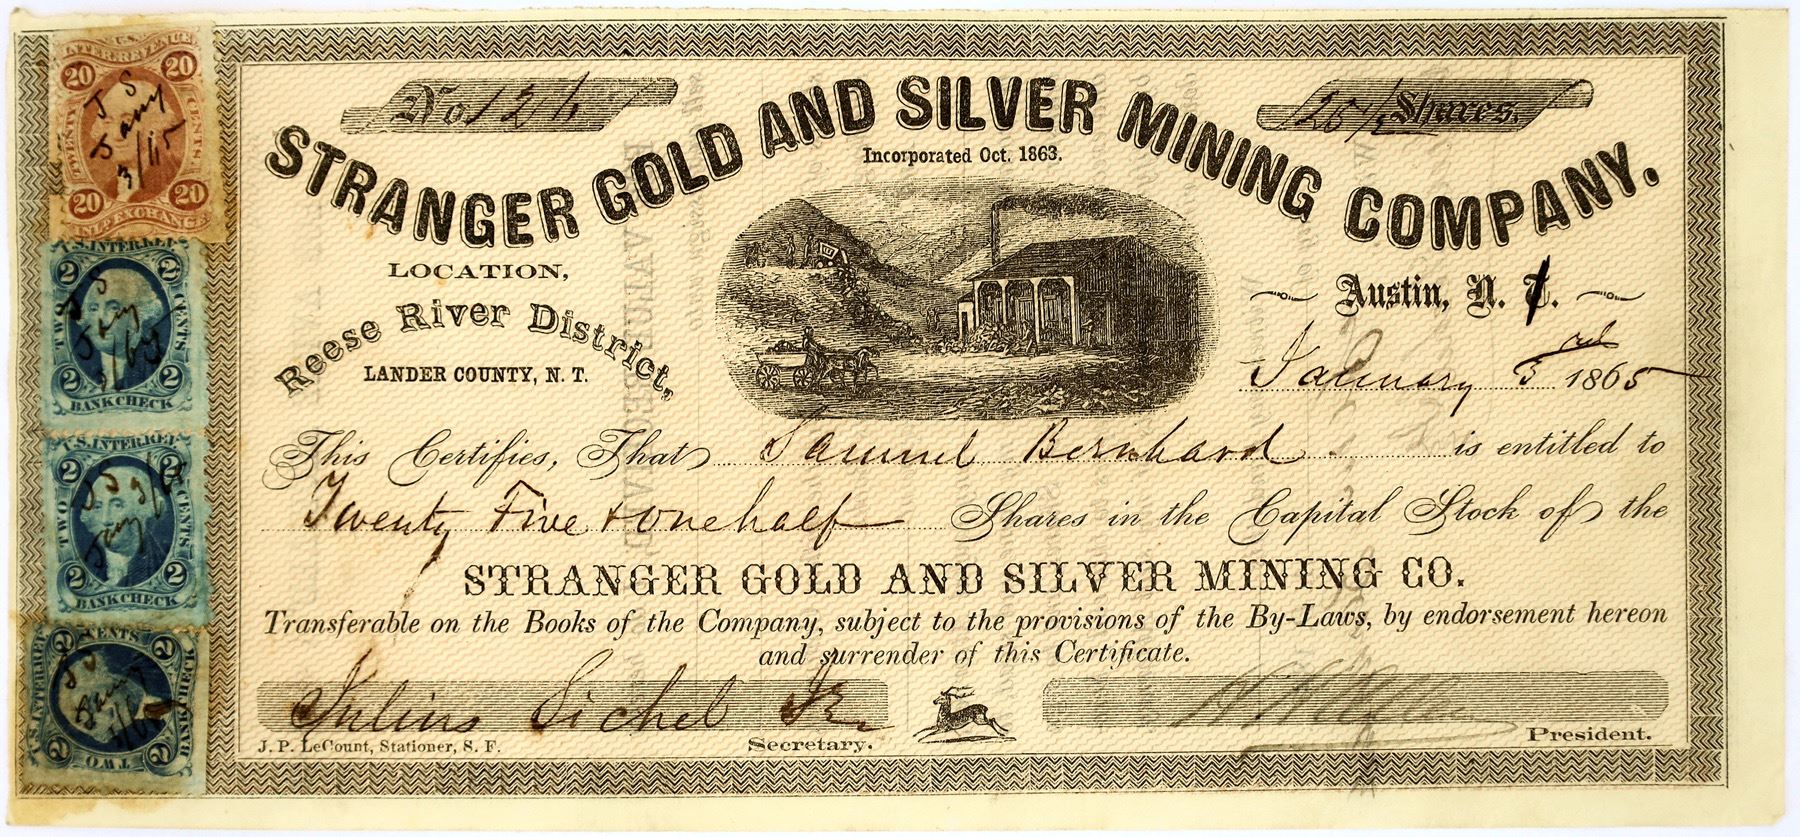 No 126
25 1/2 Shares.
STRANGER GOLD AND SILVER MINING COMPANY.
Incorporated Oct. 1863.
LOCATION,
Reese River District,
LANDER COUNTY, N. T.
Austin, N. T.
January 3rd 1865
This Certifies, That Samuel Bernhard is entitled to
Twenty Five & one half Shares in the Capital Stock of the
STRANGER GOLD AND SILVER MINING CO.
Transferable on the Books of the Company, subject to the provisions of the By-Laws, by endorsement hereon
and surrender of this Certificate.
Julius Sichel
J. P. LeCount, Stationer, S. F.
Secretary.
President.
U.S.
INTER. REVENUE
20 20
TWENTY CENTS
J S
Jany
3/65
20 20
INL. EXCHANGE
U.S. INTER. REV.
2 2
TWO CENTS
J S
Jany
3/65
2 2
BANK CHECK
U.S. INTER. REV.
2 2
TWO CENTS
J S 3/65
Jany
2 2
BANK CHECK
U.S. INTER. REV.
2 2
TWO CENTS
J S
Jany
3/65
2 2
BANK CHECK